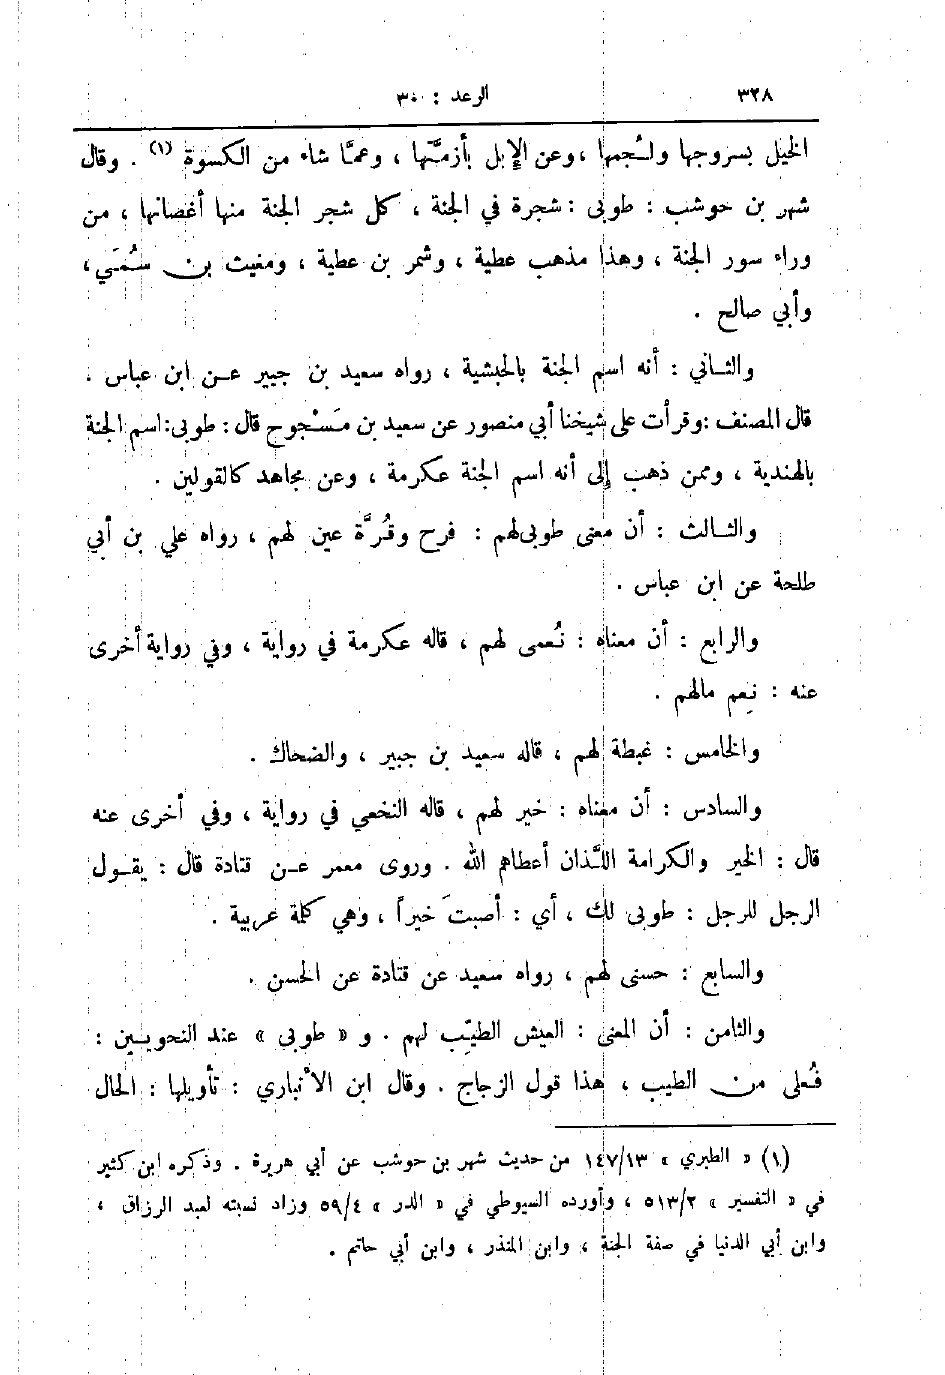 ٣٢٨ الرعد : ٣٠
الخيل بسروجها ولُجمها ، وعن الإبل بأزمَّتها ، وعمَّا شاء من الكسوة (١) . وقال
شهر بن حوشب : طوبى : شجرة في الجنة ، كل شجر الجنة منها أغصانها ، من
وراء سور الجنة ، وهذا مذهب عطية ، وشمر بن عطية ، ومغيث بن سُمَي ،
وأبي صالح .
والثاني : أنه اسم الجنة بالحبشية ، رواه سعيد بن جبير عن ابن عباس .
قال المصنف : وقرأت على شيخنا أبي منصور عن سعيد بن مَسْجوح قال : طوبى : اسم الجنة
بالهندية ، وممن ذهب إلى أنه اسم الجنة عكرمة ، وعن مجاهد كالقولين .
والثالث : أن معنى طوبى لهم : فرح وقُرَّة عين لهم ، رواه علي بن أبي
طلحة عن ابن عباس .
والرابع : أن معناه : نُعمى لهم ، قاله عكرمة في رواية ، وفي رواية أخرى
عنه : نِعم مالهم .
والخامس : غبطة لهم ، قاله سعيد بن جبير ، والضحاك .
والسادس : أن معناه : خير لهم ، قاله النخعي في رواية ، وفي أخرى عنه
قال : الخير والكرامة اللَّذان أعطاهم الله . وروى معمر عن قتادة قال : يقول
الرجل للرجل : طوبى لك ، أي : أصبتَ خيراً ، وهي كلمة عربية .
والسابع : حسنى لهم ، رواه سعيد عن قتادة عن الحسن .
والثامن : أن المعنى : العيش الطيِّب لهم . و « طوبى » عند النحويين :
فُعلى من الطيب ، هذا قول الزجاج . وقال ابن الأنباري : تأويلها : الحال
(١) « الطبري » ١٤٧/١٣ من حديث شهر بن حوشب عن أبي هريرة . وذكره ابن كثير
في « التفسير » ٥١٣/٢ ، وأورده السيوطي في « الدر » ٥٩/٤ وزاد نسبته لعبد الرزاق ،
وابن أبي الدنيا في صفة الجنة ، وابن المنذر ، وابن أبي حاتم .